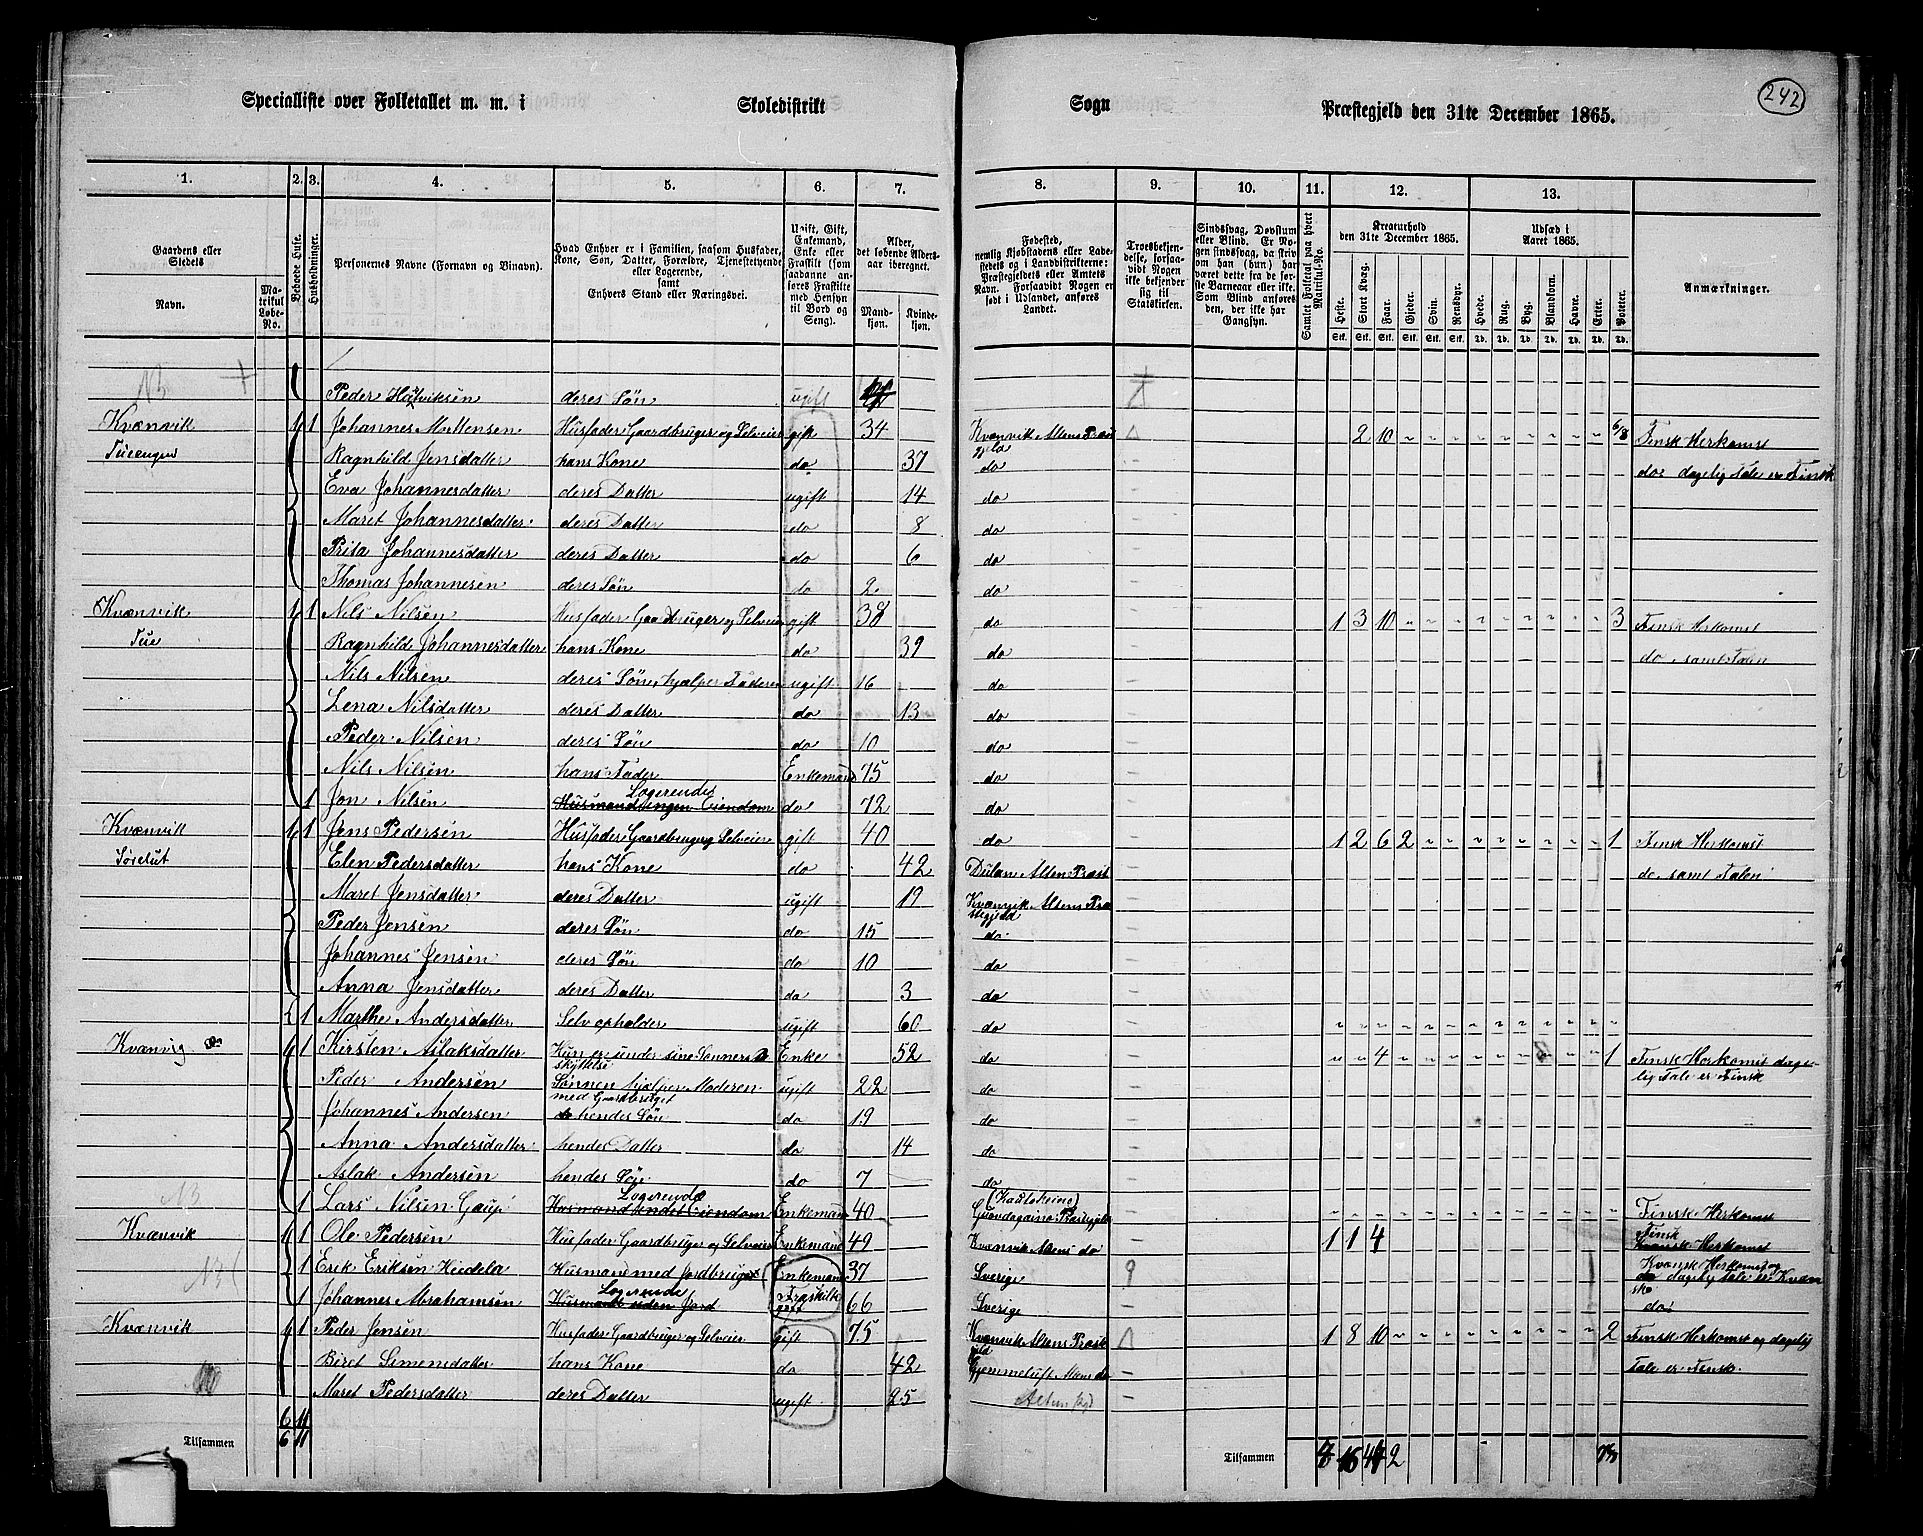 242
Specialliste over Folketallet m. m. i Skoledistrikt Sogn Præstegjeld den 31te December 1865.
1. 2. 3. 4. 5. 6. 7. 8. 9. 10. 11. 12. 13.
Gaardens eller Stedets Navn. Matrikul Løbe-No. Beboede Huse. Husholdninger. Personernes Navne (Fornavn og Binavn). Hvad Enhver er i Familien, saasom Husfader, Kone, Søn, Datter, Forældre, Tjenestetyende eller Logerende, samt Enhvers Stand eller Næringsvei. Ugift, Gift, Enkemand, Enke eller Fraskilt (som saadanne anføres Fraskilte med Hensyn til Bord og Seng). Alder, det løbende Aldersaar iberegnet. Mandkjøn. Kvindekjøn. Fødested, nemlig Kjøbstadens eller Ladestedets og i Landdistrikterne: Præstegjeldets eller Amtets Navn. Forsaavidt Nogen er født i Udlandet, anføres Landet. Troesbekjendelse, forsaavidt Nogen ikke bekjender sig til Statskirken. Sindssvag, Døvstum eller Blind. Er Nogen sindssvag, da skrives om han (hun) har været dette fra de første Barneaar eller ikke. Som Blind anføres den, der ikke har Gangsyn. Samlet Folketal paa hvert Matrikul-No. Kreaturhold den 31te December 1865. Heste. Stort Kvæg. Faar. Gjeder. Svin. Rensdyr. Udsæd i Aaret 1865. Hvede. Rug. Byg. Blandkorn. Havre. Erter. Poteter. Anmærkninger.
NB Peder Halvviksen deres Søn ugift
Kvænvik 1 1 Johannes Mattensen Husfader Gaardbruger og Selveier gift 34 Kvænvik Altens Præstegjeld 2 10 " " " " " " " " " 6/8 Finsk Herkomst
Tueengen Ragnhild Jensdatter hans Kone do 37 do do: dagelig Tale er Finsk
Eva Johannesdatter deres Datter ugift 14 do
Maret Johannesdatter deres Datter do 8 do
Brita Johannesdatter deres Datter do 6 do
Thomas Johannesen deres Søn do 2 do
Kvænvik 1 1 Nils Nilsen Husfader Gaardbruger og Selveier gift 38 do 1 3 10 " " " " " " " " " 3 Finsk Herkomst
Tue Ragnhild Johannesdatter hans Kone do 39 do do samt Talen
Nils Nilsen deres Søn, hjælper Faderen ugift 16 do
Lena Nilsdatter deres Datter do 13 do
Peder Nilsen deres Søn do 10 do
Nils Nilsen hans Fader Enkemand 75 do
1 Jon Nilsen Husmand ingen Eiendom Logerende do 72 do
Kvænvik 1 1 Jens Pedersen Husfader Gaardbruger og Selveier gift 40 do 1 2 6 2 " " " " " " " " 1 Finsk Herkomst
Sørelut Elen Pedersdatter hans Kone do 42 Altens Præst do samt Talen
Maret Jensdatter deres Datter ugift 19 Kvænvik Altens Præstegjeld
Peder Jensen deres Søn do 15 do
Johannes Jensen deres Søn do 10 do
Anna Jensdatter deres Datter do 3 do
2 1 Marthe Andersdatter Selvopholder ugift 60 do
Kvænvig 1 1 Kirsten Aslaksdatter Hun er under sine Sønners Beskyttelse Enke 52 do " " 4 " " " " " " " " " 1 Finsk Herkomst dagelig Tale er Finsk
Peder Andersen Sønnen hjælper Moderen med Gaardbruget ugift 22 do
Johannes Andersen hendes Søn do 19 do
Anna Andersdatter hendes Datter do 14 do
Aslak Andersen hendes Søn do 7 do
NB 1 Lars Nilsen Gaup Husmand undet Eiendom Logerende Enkemand 40 (Kautokeino) Præstegjeld Finsk Herkomst
Kvænvik 1 1 Ole Pedersen Husfader Gaardbruger og Selveier Enkemand 49 Kvænvik Altens do 1 1 4 Kvænsk Finsk Herkomst
1 Erik Eriksen Heidela Husmand med Jordbruget Enkemand 37 Sverige 9 Kvænsk Herkomst og do dagelig Tale er Kvænsk
1 Johannes Abrahamsen Husmand uden Jord Logerende Fraskilt gift 66 Sverige do
Kvænvik 1 1 Peder Jensen Husfader Gaardbruger og Selveier gift 75 Kvænvik Altens Præstegjeld 1 8 10 " " " " " " " " " 2 Finsk Herkomst og dagelig
Beret Simensdatter hans Kone do 42 Altens do Tale er Finsk.
Maret Pedersdatter deres Datter ugift 25 Alten
6 11
Tilsammen 6 11 Tilsammen